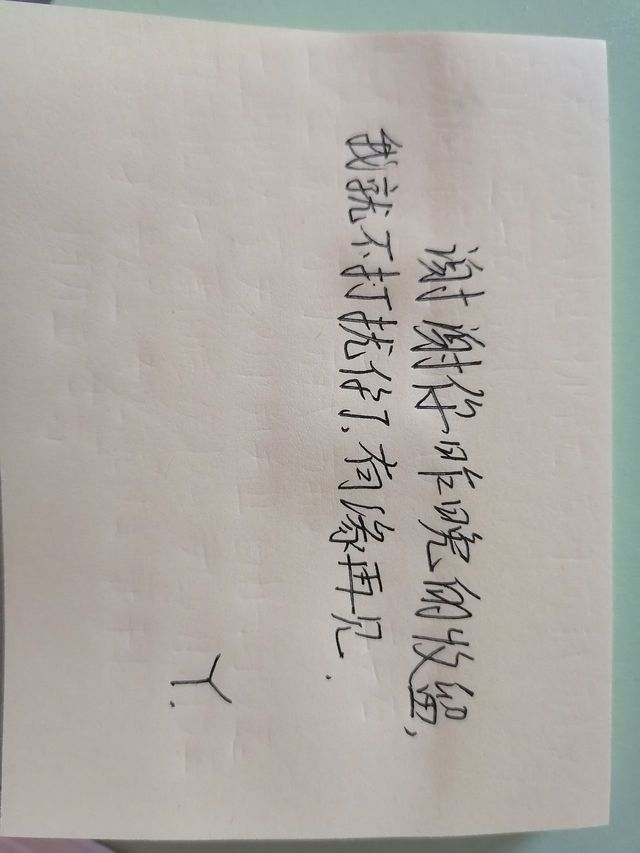 谢谢你昨晚的收留,
我就不打扰你了.有缘再见.
Y.